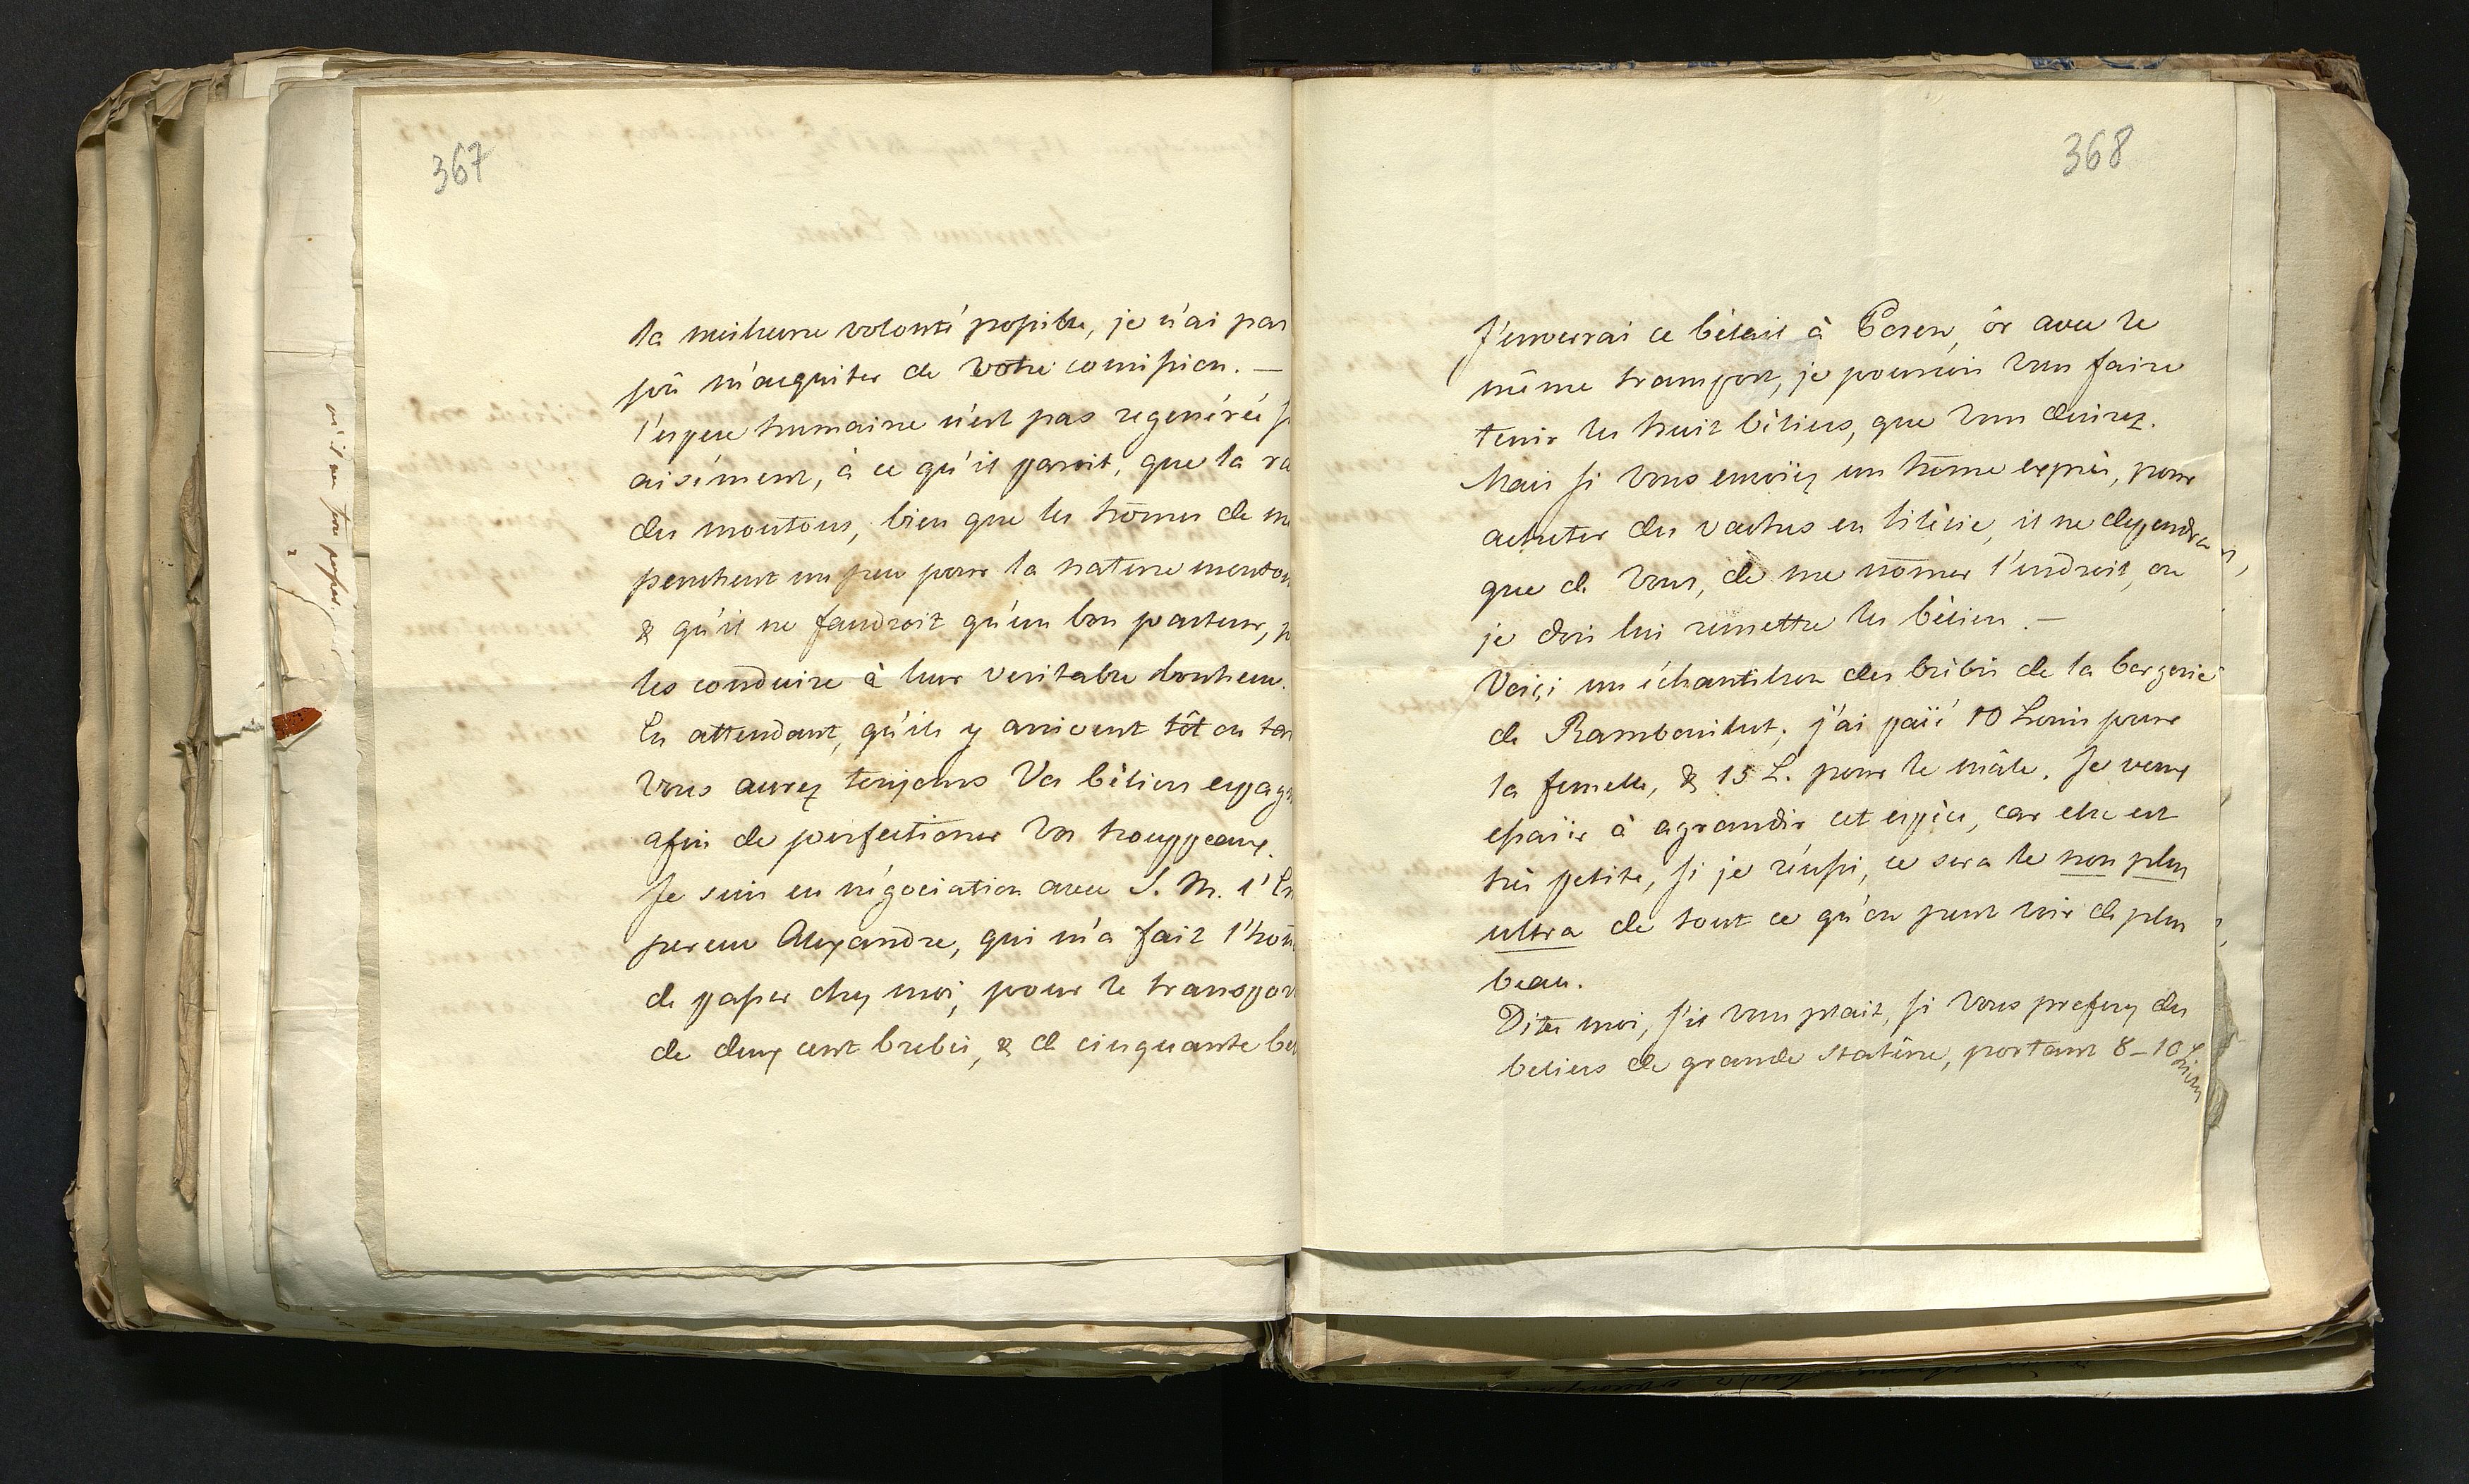 367
la meilleure volonté possible, je n'ai pas
pû m'acquiter de votre comission. —
l'espece humaine n'est pas regenérée si
aisément, à ce qu'il paroit, que la ra
des moutons, bien que les hom̄es de
penchent un peu pour la nature mouton
& qu'il ne faudroit qu'un bon pasteur, p
les conduire à leur veritable bonheur.
En attendant, qu'ils y arrivent tôt ou tar
vous aurez toujours Vos béliers espagn
afin de perfectioner Vos trouppeaux.
Je suis en négociation avec S. M. l'Em
pereur Alexandre, qui m'a fait l'hon̄
de passer chez moi, pour le transpor
de deux cent brebis, & de cinquante bel
368
J'enverrai ce bétail à Posen, or avec le
même transport, je pourrois vous faire
tenir les huit béliers, que vous desirez.
Mais si vous envoiïez un hōme exprès, pour
acheter des vaches en Silésie, il ne dependra
que de Vous, de me nōmer l'endroit, ou
je dois lui remettre les béliers. —
Voiçi un échantillon des brébis de la bergerie
de Rambouillet; j'ai païé 10 Louis pour
la femelle, & 15 L. pour le mâle. Je veux
essaïer à agrandir cet espèce, car elle est
très petite, si je réussi, ce sera le non plus
ultra de tout ce qu'on peut voir de plus
beau.
Dites moi, s'il vous plait, si vous preferez des
beliers de grande statûre, portant 8–10 Livres